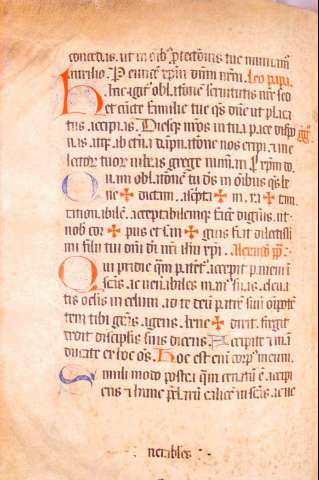 concedas. ut in oib' ꝓtectionis tue muniam̃
auxilio. P eundē xp̄m dn̄m nr̄m. Leo papa.
Hanc igit̃ oblationē seruitutis nr̄e sed
et cūcte familie tue q̄s dn̄e ut placa
tus accipias. Diesq; nr̄os in tua pace dispo
nas. atq; ab et̃na dāpnatione nos eripi. et in e
lectoꝝ tuoꝝ iubeas grege num̃ari. P xp̄m do.
Quam oblationē tu ds̄ in oībus q̄s be
ne ✠ dictam. asc̃pta ✠ m. ra ✠ tam
rationabilē. acceptabilemq; facē digneris. ut
nob̄ cor ✠ pus et san ✠ guis fiat dilectissi
mi filii tui dn̄i dī nr̄i ihu xp̄i. Alexand̃ pp̄.
Qui pridie q̄m pat̃et̃. accepit panem ī
sc̄as. ac uen̄abiles manꝰ suas. eleua
tis oclis in celum. ad te deū patrē suū oīpotē
tem tibi gr̄as agens. bene ✠ dixit. fregit
dedit discipl̃is suis dicens. Accipite et man
ducate ex hoc oēs. Hoc est eni corpꝰ meum.
Simili modo postea q̄m cenatū ē. accipi
ens et hunc p̄claꝝ calicē in sc̄as. ac ue
nerabiles